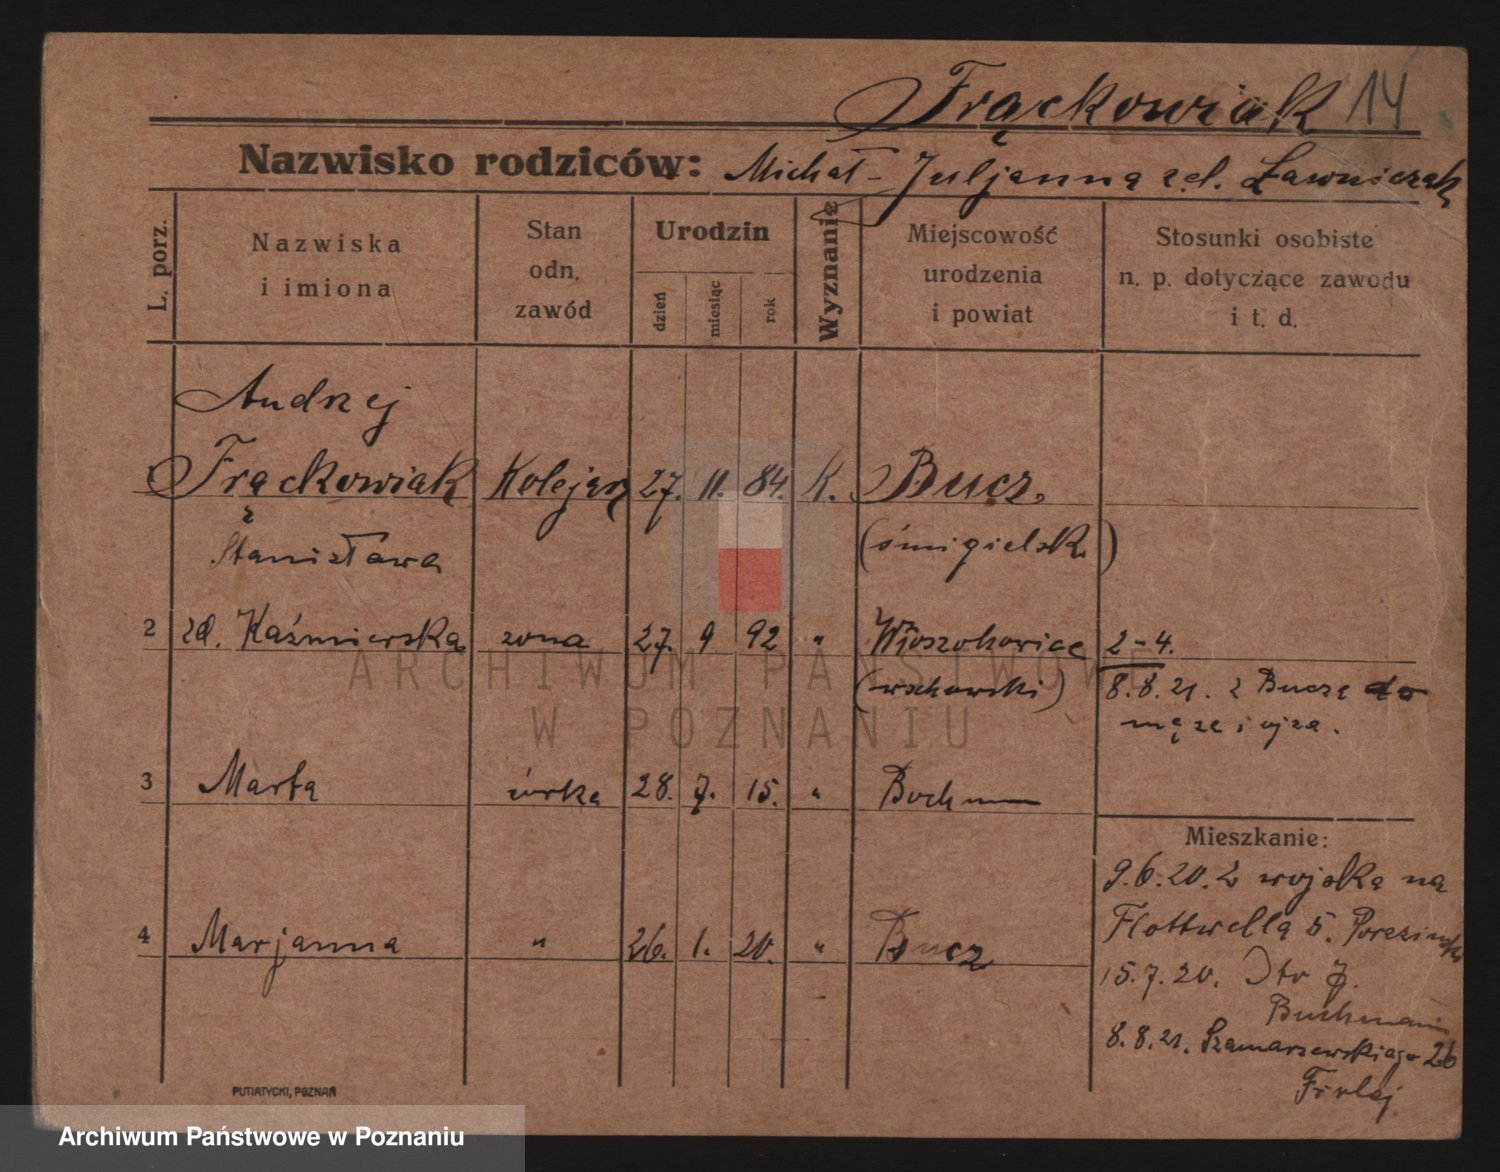 Frąckowiak 14
Nazwisko rodziców: Michał - Juljanna zd. Ławniczak
L. porz.
Nazwiska
i imiona
Stan
odn.
zawód
Urodzin
dzień
miesiąc
rok
Wyznanie
Miejscowość
urodzenia
i powiat
Stosunki osobiste
n. p. dotyczące zawodu
i t. d.
Andrzej
1 Frąckowiak Kolejarz 27. 11. 84. K. Bucz.
(śmigielski)
Stanisława
2 zd. Kaźmierska żona 27. 9 92 " Włoszakowice 2-4.
(wschowski) 8.8.21. z Bucza do
męża i ojca.
3 Marta córka 28. 7. 15. " Bochum
Mieszkanie:
9.6.20. z wojska na
Flottwella 5.
4 Marjanna " 26. 1. 20. " Bucz
15.7.20. Dto 7.
Buchmann
8.8.21. Szamarzewskiego 26
PUTIATYCKI, POZNAŃ
ARCHIWUM PAŃSTWOWE
W POZNANIU
Archiwum Państwowe w Poznaniu